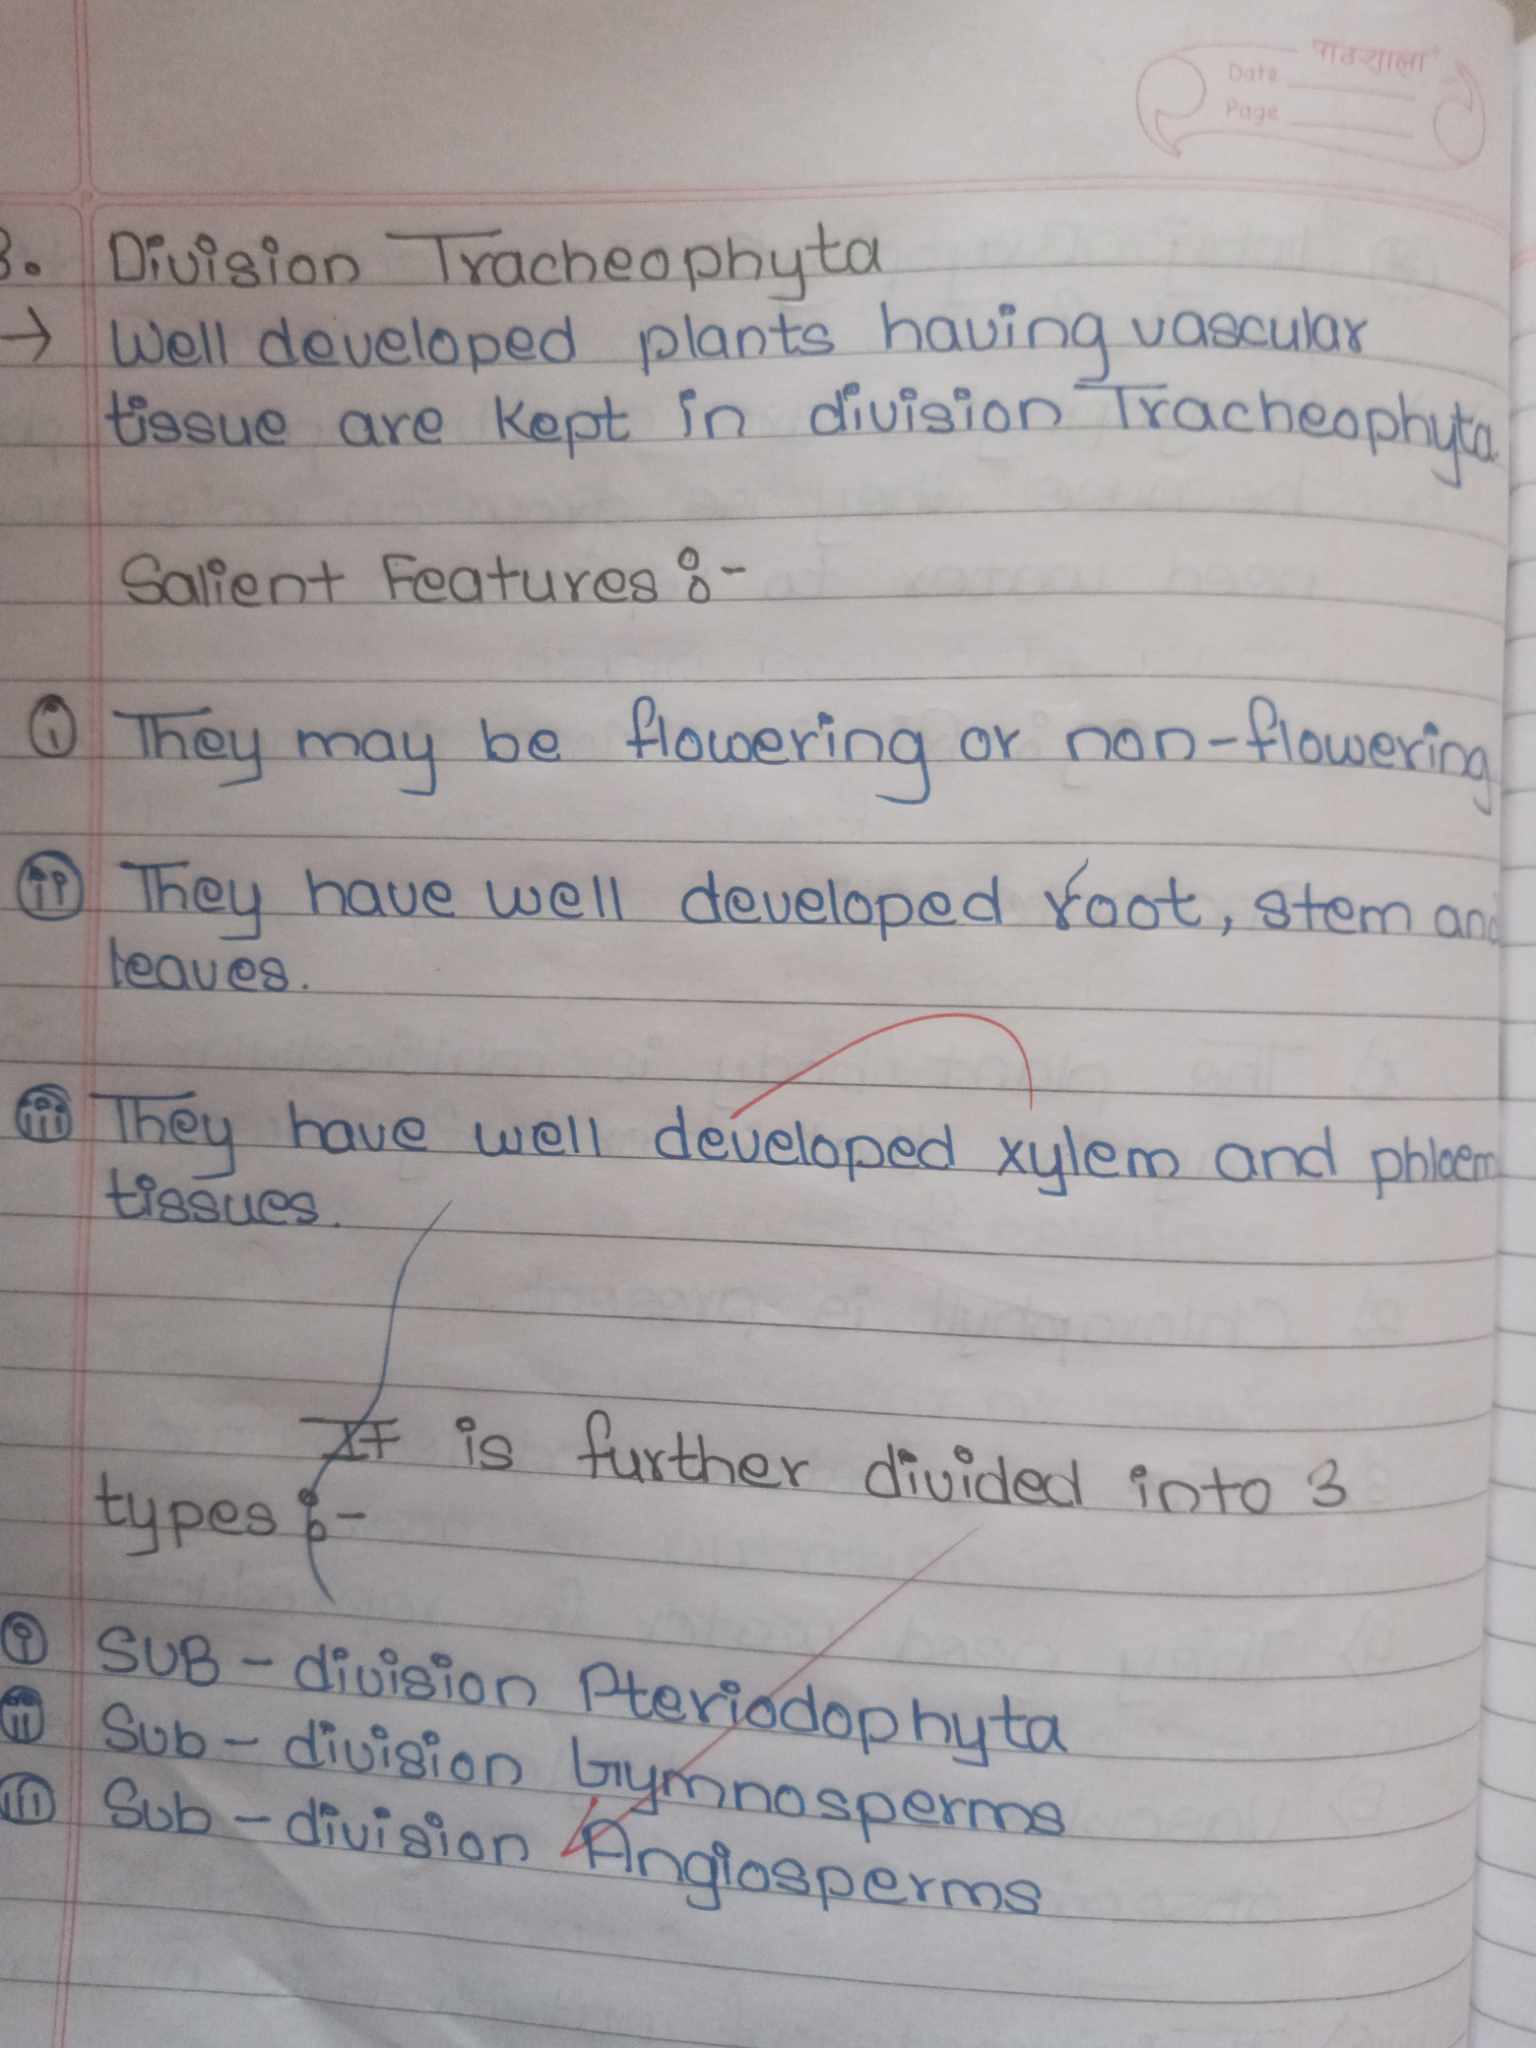 पाठशाला
Date
Page
3. Division Tracheophyta
→ Well developed plants having vascular
tissue are kept in division Tracheophyta
Salient Features :-
(i) They may be flowering or non-flowering
(ii) They have well developed root, stem and
leaves.
(iii) They have well developed xylem and phloem
tissues.
It is further divided into 3
types :-
(i) SUB-division Pteriodophyta
(ii) Sub-division Gymnosperms
(iii) Sub-division Angiosperms